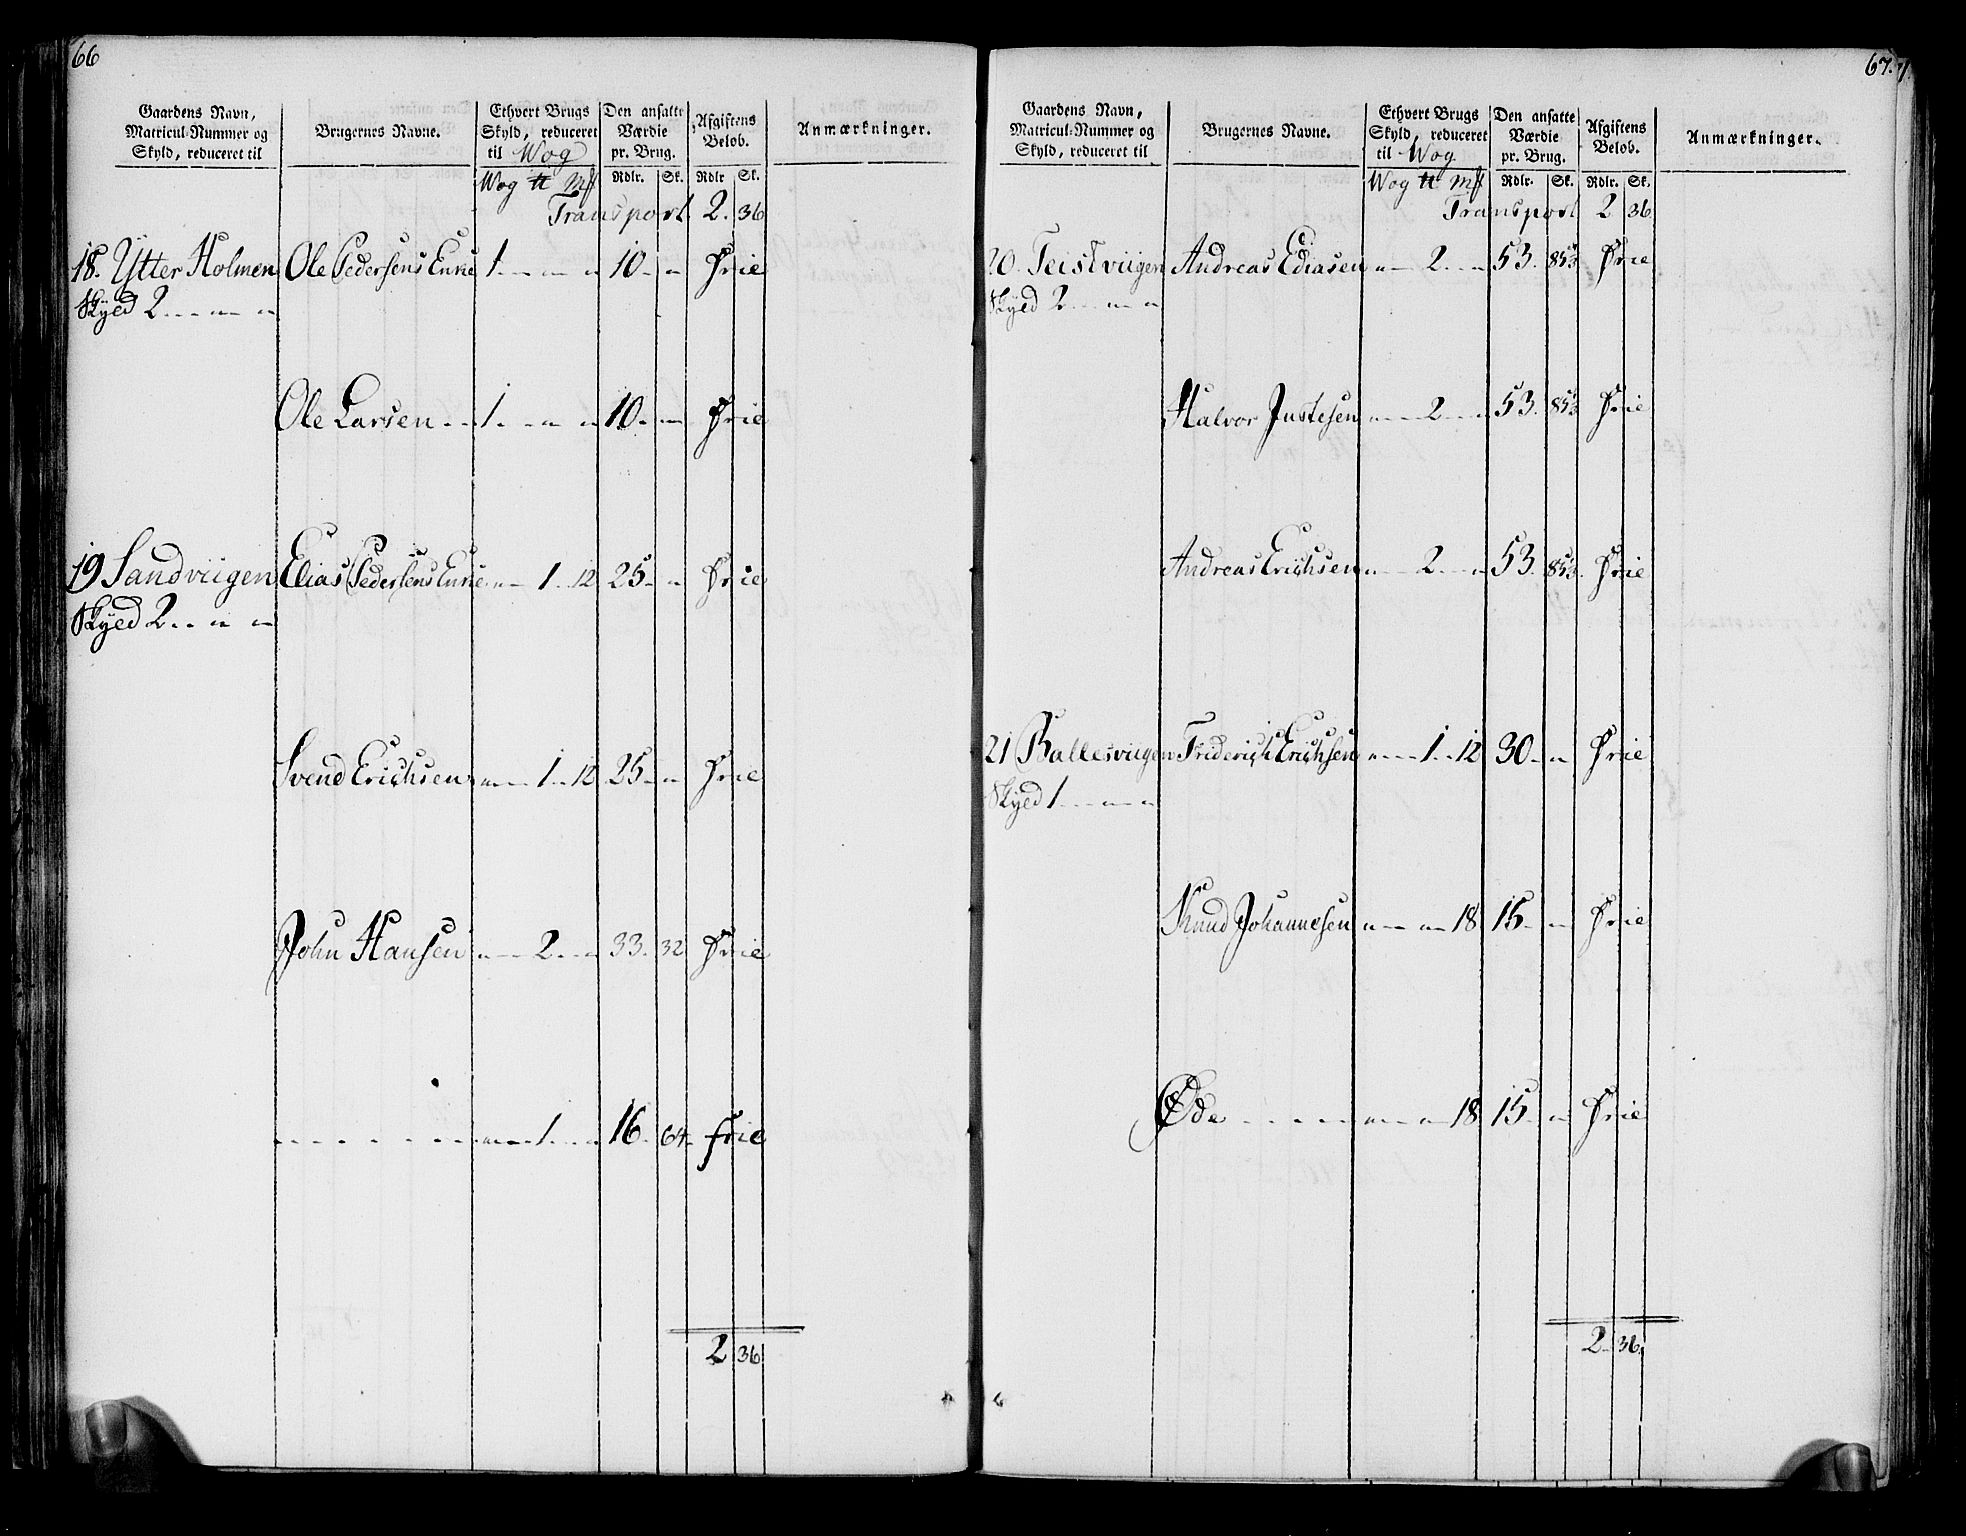 66
Gaardens Navn, Matricul-Nummer og Skyld, reduceret til | Brugernes Navne. | Ethvert Brugs Skyld, reduceret til Wog | Den ansatte Værdie pr. Brug. | Afgiftens Beløb. | Anmærkninger.
Wog ℔ Mk | Rdlr. | Sk. | Rdlr | Sk.
Transport 2. 36
18. Ytter Holmen Ole Pedersens Enke 1 - - - 10 - - Frie
Skyld 2 - - -
Ole Larsen - - 1 - - - 10 - - Frie
19 Sandviigen Elias Pedersens Enke - - 1 - 12 25 - - Frie
Skyld 2 - - -
Svend Erichsen - - 1 - 12 25 - - Frie
John Hansen - - 2 - - 33. 32 Frie
- - - - - - - - 1 - - 16. 64. frie
2 36
67.
Gaardens Navn, Matricul-Nummer og Skyld, reduceret til | Brugernes Navne. | Ethvert Brugs Skyld, reduceret til Wog | Den ansatte Værdie pr. Brug. | Afgiftens Beløb. | Anmærkninger.
Wog ℔ Mk | Rdlr. | Sk. | Rdlr. | Sk.
Transport 2 36
20. Teistviigen Andreas Ediasen - - 2 - - 53. 85⅓ Frie
Skyld 2 - - -
Halvor Justesen - - 2 - - 53. 85⅓ Frie
Andreas Erichsen - - 2 - - 53. 85⅓ Frie
21 Ballesviigen Friderich Erichsen - - 1 - 12 30 - - Frie
Skyld 1 - - -
Knud Johannesen - - - 18 15 - - Frie
Øde - - - - - - - 18 15 - - Frie
2 36